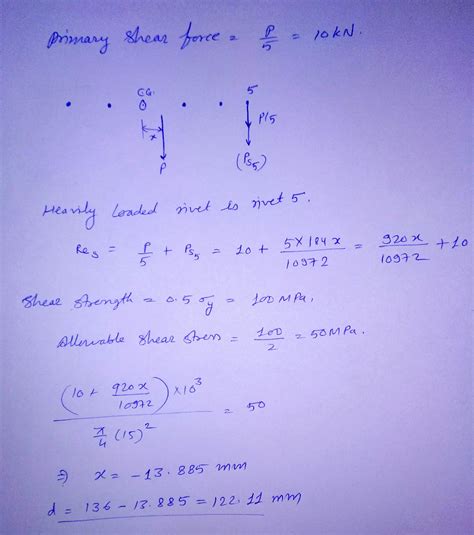 Primary Shear force = P/5 = 10 kN.
CG. 5
x P/5
P (Ps5)
Heavily Loaded rivet is rivet 5.
Res = P/5 + Ps5 = 10 + 5 X 184 x / 10972 = 920 x / 10972 + 10
Shear Strength = 0.5 σy = 100 MPa,
Allowable Shear Stress = 100/2 = 50 MPa.
(10 + 920 x / 10972) × 10³ / π/4 (15)² = 50
⇒ x = - 13.885 mm
d = 136 - 13.885 = 122.11 mm